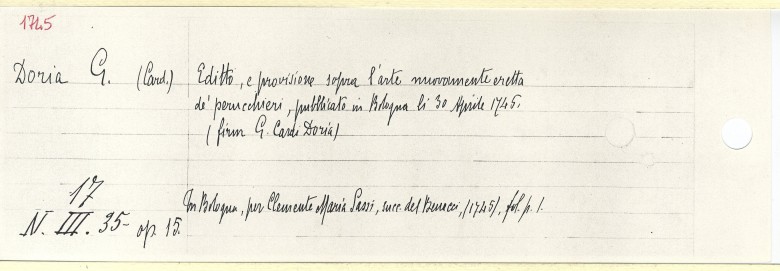 1745
Doria G. (Card.) Editto, e provisione sopra l'arte nuovamente eretta
de' peruchieri, pubblicato in Bologna li 30 Aprile 1745.
(firm G. Card. Doria)
17
N. III. 35- op. 15.
In Bologna, per Clemente Maria Sassi, succ. del Benacci, (1745), fol. p. 1.